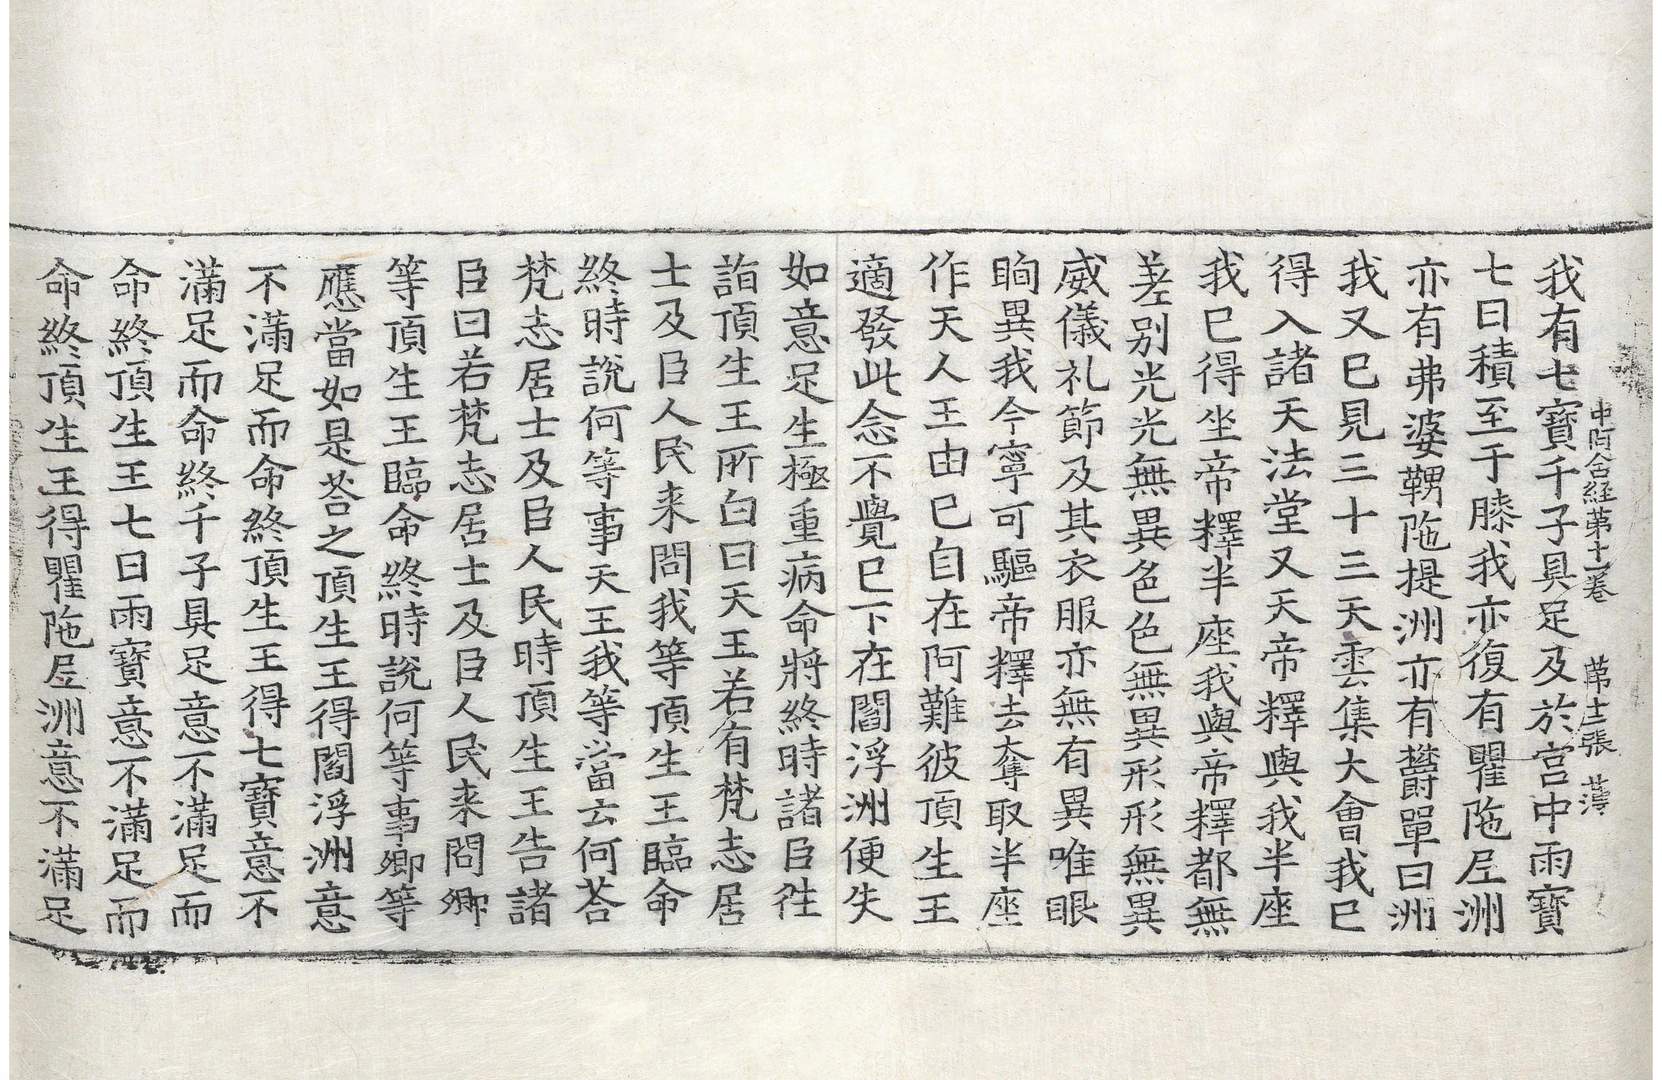 中阿含経苐十一卷 苐十一張 薄
我有七寶千子具足及於宮中雨寶
七日積至于膝我亦復有瞿陁𡰱洲
亦有弗婆鞞陁提洲亦有欝單曰洲
我又已見三十三天雲集大會我已
得入諸天法堂又天帝釋與我半座
我已得坐帝釋半座我與帝釋都無
差別光光無異色色無異形形無異
威儀礼節及其衣服亦無有異唯眼
眴異我今寧可驅帝釋去奪取半座
作天人王由已自在阿難彼頂生王
適發此念不覺已下在閻浮洲便失
如意足生極重病命將終時諸臣徃
詣頂生王所白曰天王若有梵志居
士及臣人民来問我等頂生王臨命
終時說何等事天王我等當云何荅
梵志居士及臣人民時頂生王告諸
臣曰若梵志居士及臣人民来問卿
等頂生王臨命終時說何等事卿等
應當如是荅之頂生王得閻浮洲意
不滿足而命終頂生王得七寶意不
滿足而命終千子具足意不滿足而
命終頂生王七日雨寶意不滿足而
命終頂生王得瞿陁𡰱洲意不滿足